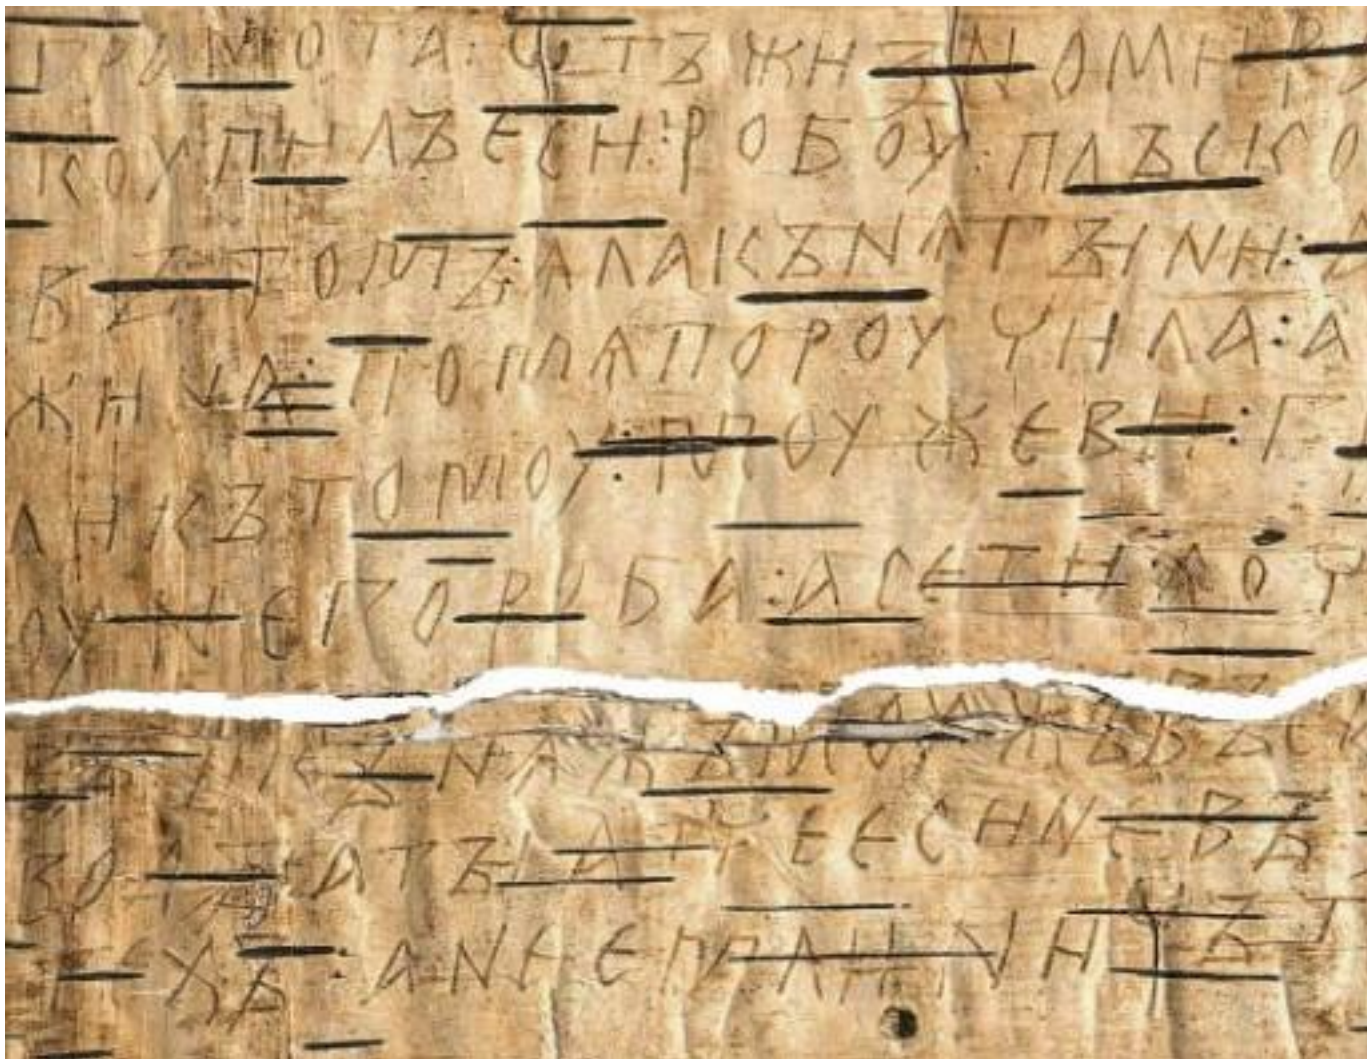 ГРАМОТА : ѠТЪ ЖИЗНОМИР
КОУПИЛЪ ЕСИ : РОБОУ : ПЛЪСКО
ВЪ ТОМЪ : АЛА КЪНѦГЪІНИ :
ЖИНА : ПО МѦ ПОРОУЧИЛА : А
ЛИ КЪ ТОМОУ : МОУЖЕВИ : Г
ОУ НЕГО РОБА : А СЕ ТИ ХОЧ
КЪНѦЖЪ МОУЖЪ ВЪСА
ВО АТЪІ АТЧЕ ЕСИ НЕ ВЪ
ХЪ : А НЕ ЕМЛИ НИЧЪТ